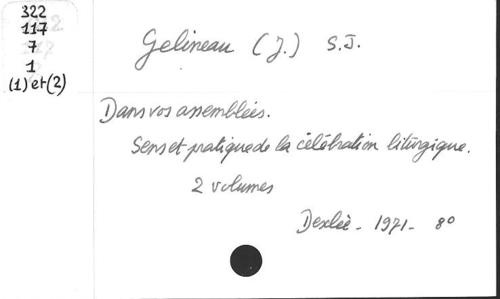 322
117
7
1
(1) et (2)
Gelineau (J.) S.J.
Dans vos assemblées.
Sens et pratique de la célébration liturgique.
2 volumes
Desclée - 1971 - 8º